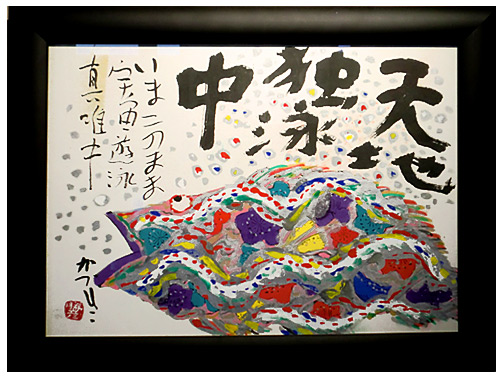 天地
独泳
中
いまこのまま
宇宙遊泳
真唯中
かつひこ